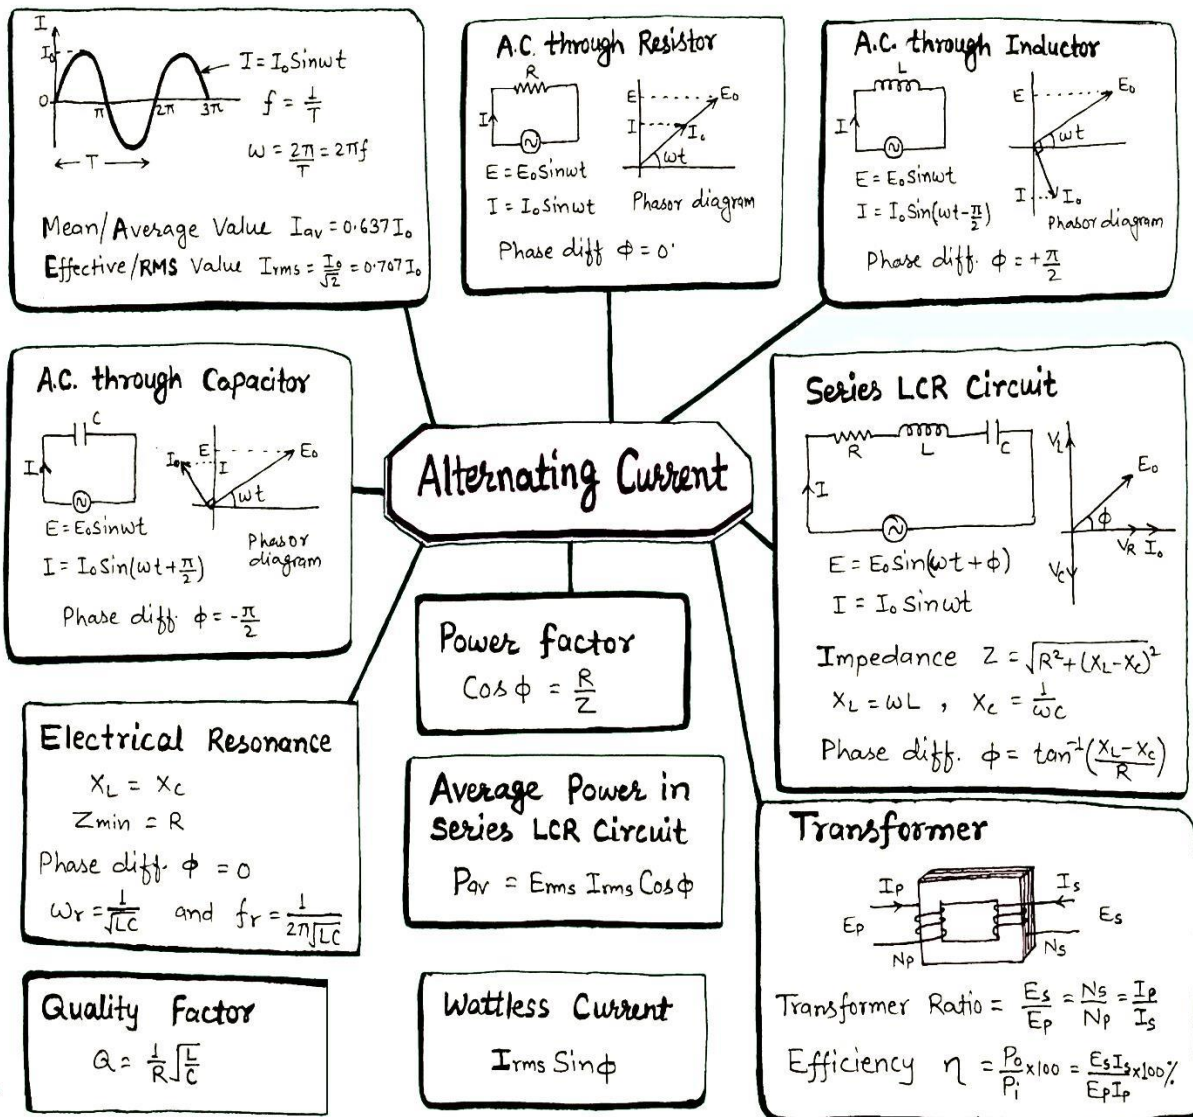 I
I₀
I = I₀ Sinωt
0
π
2π
3π
T
f = 1/T
ω = 2π/T = 2πf
Mean/Average Value Iav = 0.637 I₀
Effective/RMS Value Irms = I₀/√2 = 0.707 I₀
A.C. through Resistor
R
I
E = E₀Sinωt
I = I₀Sinωt
E
I
E₀
I₀
ωt
Phasor diagram
Phase diff ϕ = 0°
A.C. through Inductor
L
I
E = E₀Sinωt
I = I₀Sin(ωt-π/2)
E
E₀
ωt
I
I₀
Phasor diagram
Phase diff. ϕ = +π/2
A.C. through Capacitor
C
I
E = E₀Sinωt
I = I₀Sin(ωt+π/2)
I₀
E
I
E₀
ωt
Phasor
diagram
Phase diff. ϕ = -π/2
Alternating Current
Series LCR Circuit
R
L
C
I
E = E₀Sin(ωt+ϕ)
I = I₀ Sinωt
V_L
E₀
ϕ
V_R I₀
V_C
Impedance Z = √R²+(X_L-X_C)²
X_L = ωL , X_C = 1/ωC
Phase diff. ϕ = tan⁻¹(X_L-X_C/R)
Power factor
Cos ϕ = R/Z
Electrical Resonance
X_L = X_C
Zmin = R
Phase diff. ϕ = 0
ωr = 1/√LC and fr = 1/2π√LC
Average Power in
Series LCR Circuit
Pav = Erms Irms Cosϕ
Transformer
Ip
Is
Ep
Es
Np
Ns
Transformer Ratio = Es/Ep = Ns/Np = Ip/Is
Efficiency η = Po/Pi ×100 = EsIs/EpIp ×100%
Quality Factor
Q = 1/R √L/C
Wattless Current
Irms Sinϕ